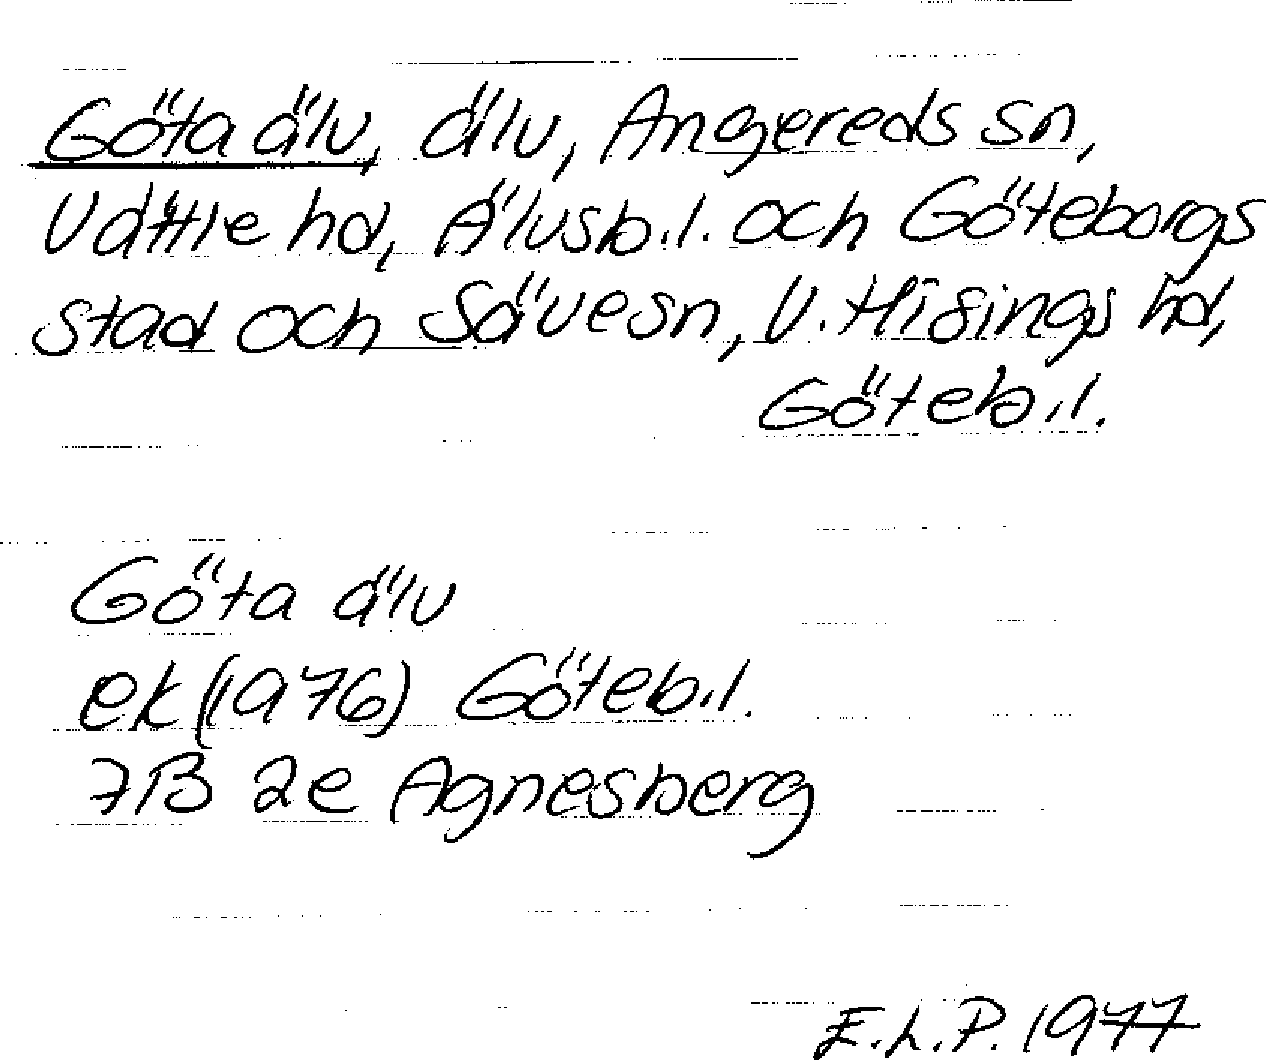 Göta älv, älv, Angereds sn,
Vättle hd, Älvsb.l. och Göteborgs
stad och Säve sn, V. Hisings hd,
Göteb.l.
Göta älv
ek (1976) Göteb.l.
7B 2e Agnesberg
E.L.P. 1977